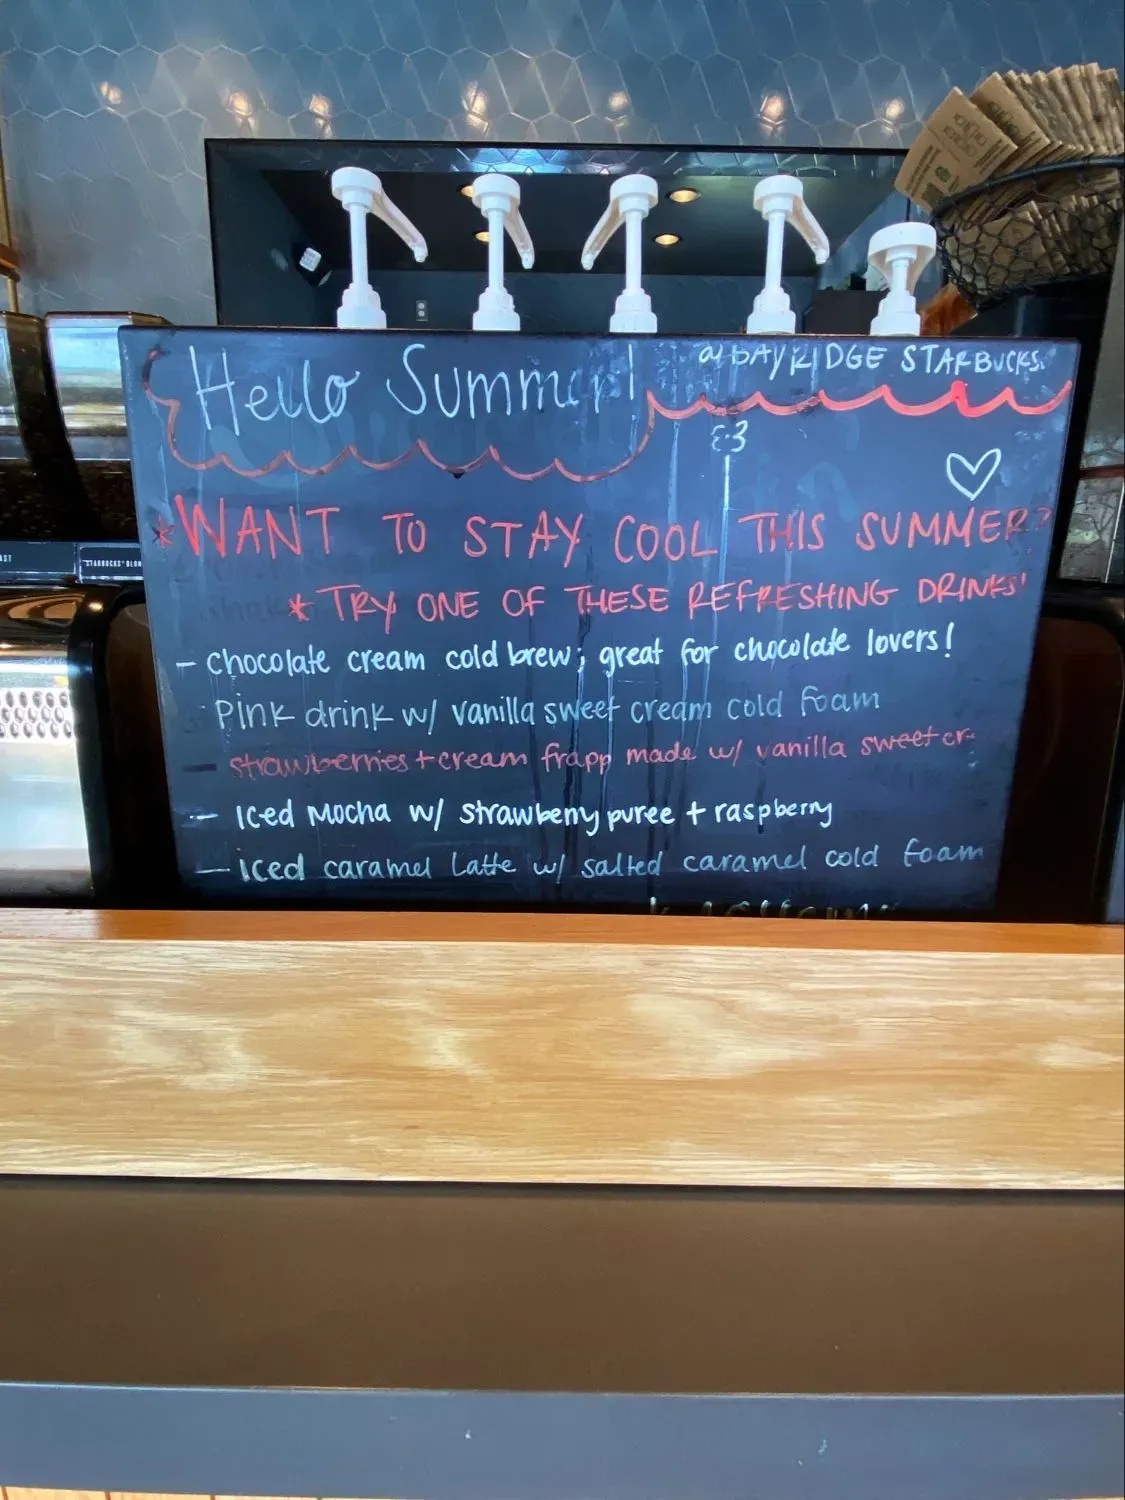 Hello Summer!
@ BAYRIDGE STARBUCKS.
*WANT TO STAY COOL THIS SUMMER?
*TRY ONE OF THESE REFRESHING DRINKS!
- chocolate cream cold brew; great for chocolate lovers!
Pink drink w/ vanilla sweet cream cold foam
- strawberries + cream frapp made w/ vanilla sweet cr
- Iced Mocha w/ strawberry puree + raspberry
- Iced caramel Latte w/ salted caramel cold foam
AST
STARBUCKS® BLON